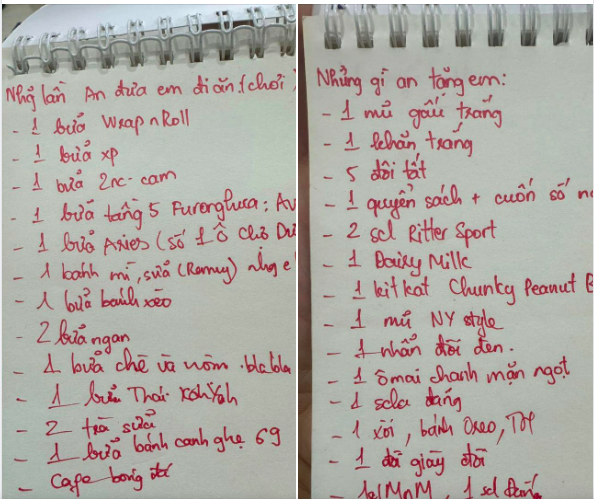 Nhg lần An đưa em đi ăn, (chơi)
- 1 bữa Wrap n Roll
- 1 bữa xp
- 1 bữa 2nc - cam
- 1 bữa tầng 5 : Av
- 1 bữa Aries (số 1 Ô Chợ Dừ
- 1 bánh mì, sữa (Romy) nhg e
- 1 bữa bánh xèo
- 2 bữa ngan
- 1 bữa chè và nộm .blabla
- 1 bữa Thái KohYah
- 2 trà sữa
- 1 bữa bánh canh ghẹ 69
- Cafe bóng đá
Những gì an tặng em:
- 1 mũ gấu trắng
- 1 khăn trắng
- 5 đôi tất
- 1 quyển sách + cuốn sổ n
- 2 scl Ritter Sport
- 1 Dairy Milk
- 1 kitkat Chunky Peanut B
- 1 mũ NY style
- 1 nhẫn đôi đen.
- 1 ômai chanh mặn ngọt
- 1 scla đắng
- 1 xôi, bánh Oreo,
- 1 đôi giày đôi
- MnM, 1 scl đắng